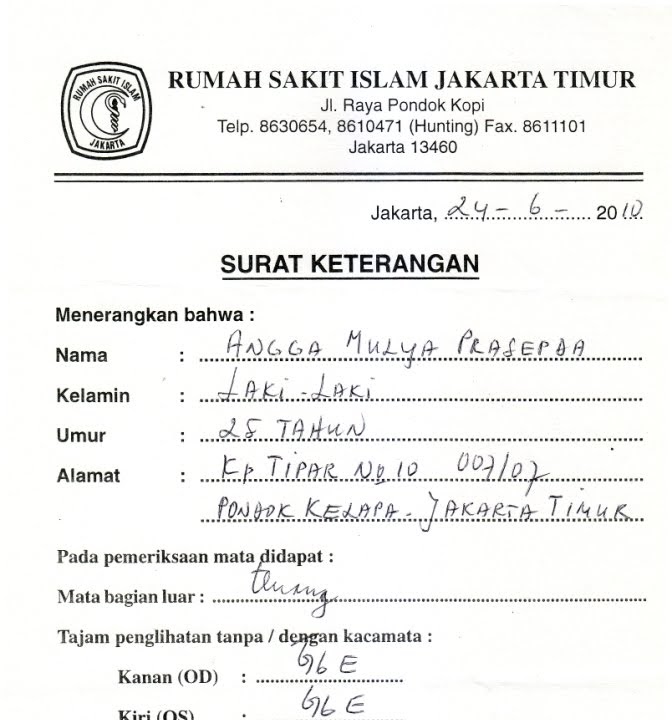 RUMAH SAKIT ISLAM
JAKARTA
RUMAH SAKIT ISLAM JAKARTA TIMUR
Jl. Raya Pondok Kopi
Telp. 8630654, 8610471 (Hunting) Fax. 8611101
Jakarta 13460
Jakarta, 24 - 6 - 2010
SURAT KETERANGAN
Menerangkan bahwa :
Nama : ANGGA MULYA
Kelamin : LAKi - LAKi
Umur : 25 TAHUN
Alamat : Kp TIPAR No 10 007/07
PONDOK KELAPA - JAKARTA TIMUR
Pada pemeriksaan mata didapat :
Mata bagian luar : tenang
Tajam penglihatan tanpa / dengan kacamata :
Kanan (OD) : 6/6 E
Kiri (OS) : 6/6 E